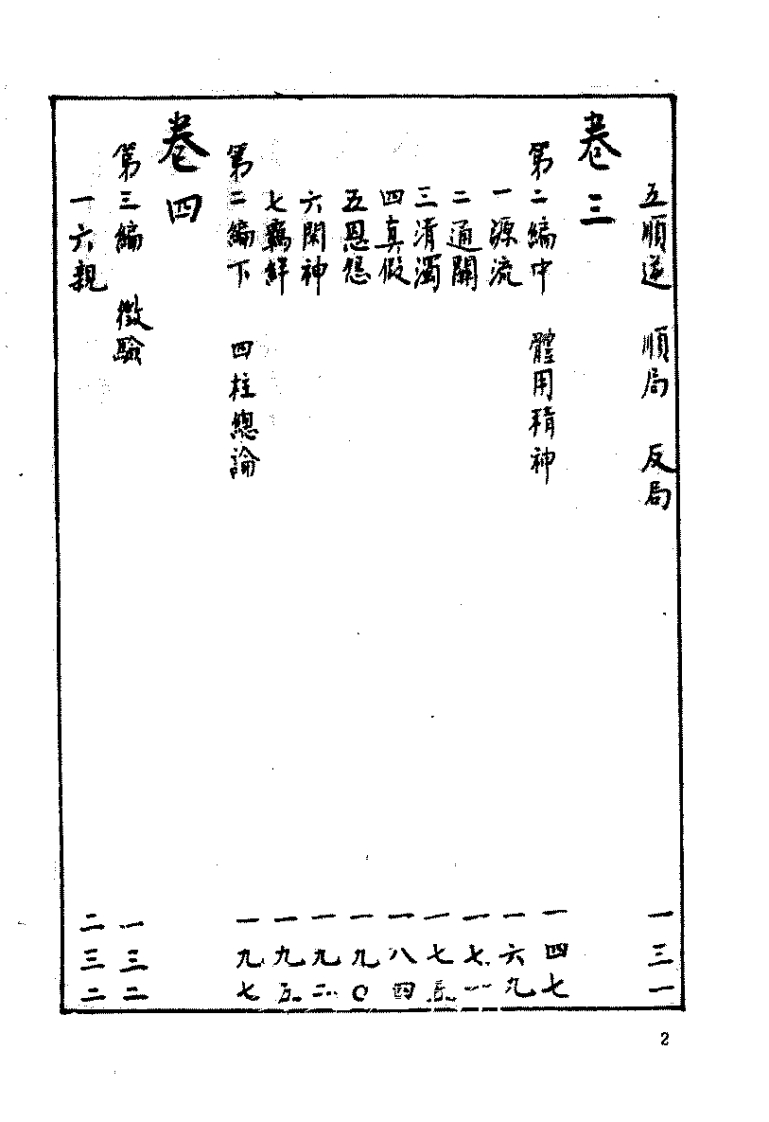 五順逆 順局 反局 一三一
卷三
第二編中 體用精神 一四七
一源流 一六九
二通關 一七一
三清濁 一七五
四真假 一八四
五恩怨 一九〇
六閑神 一九二
七羈絆 一九五
第二編下 四柱總論 一九七
卷四
第三編 徵驗 一三二
一六親 二三二
2